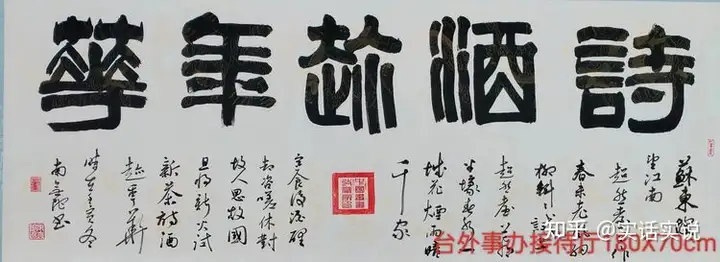 詩酒趁年華
蘇東坡
望江南
超然臺作
春未老風細
柳斜斜試
超然臺上看
半壕春水一
城花煙雨暗
千家
寒食後酒醒
却咨嗟休對
故人思故國
且將新火試
新茶詩酒
趁年華
知乎 @实话实说
台外事办接待厅180X70cm